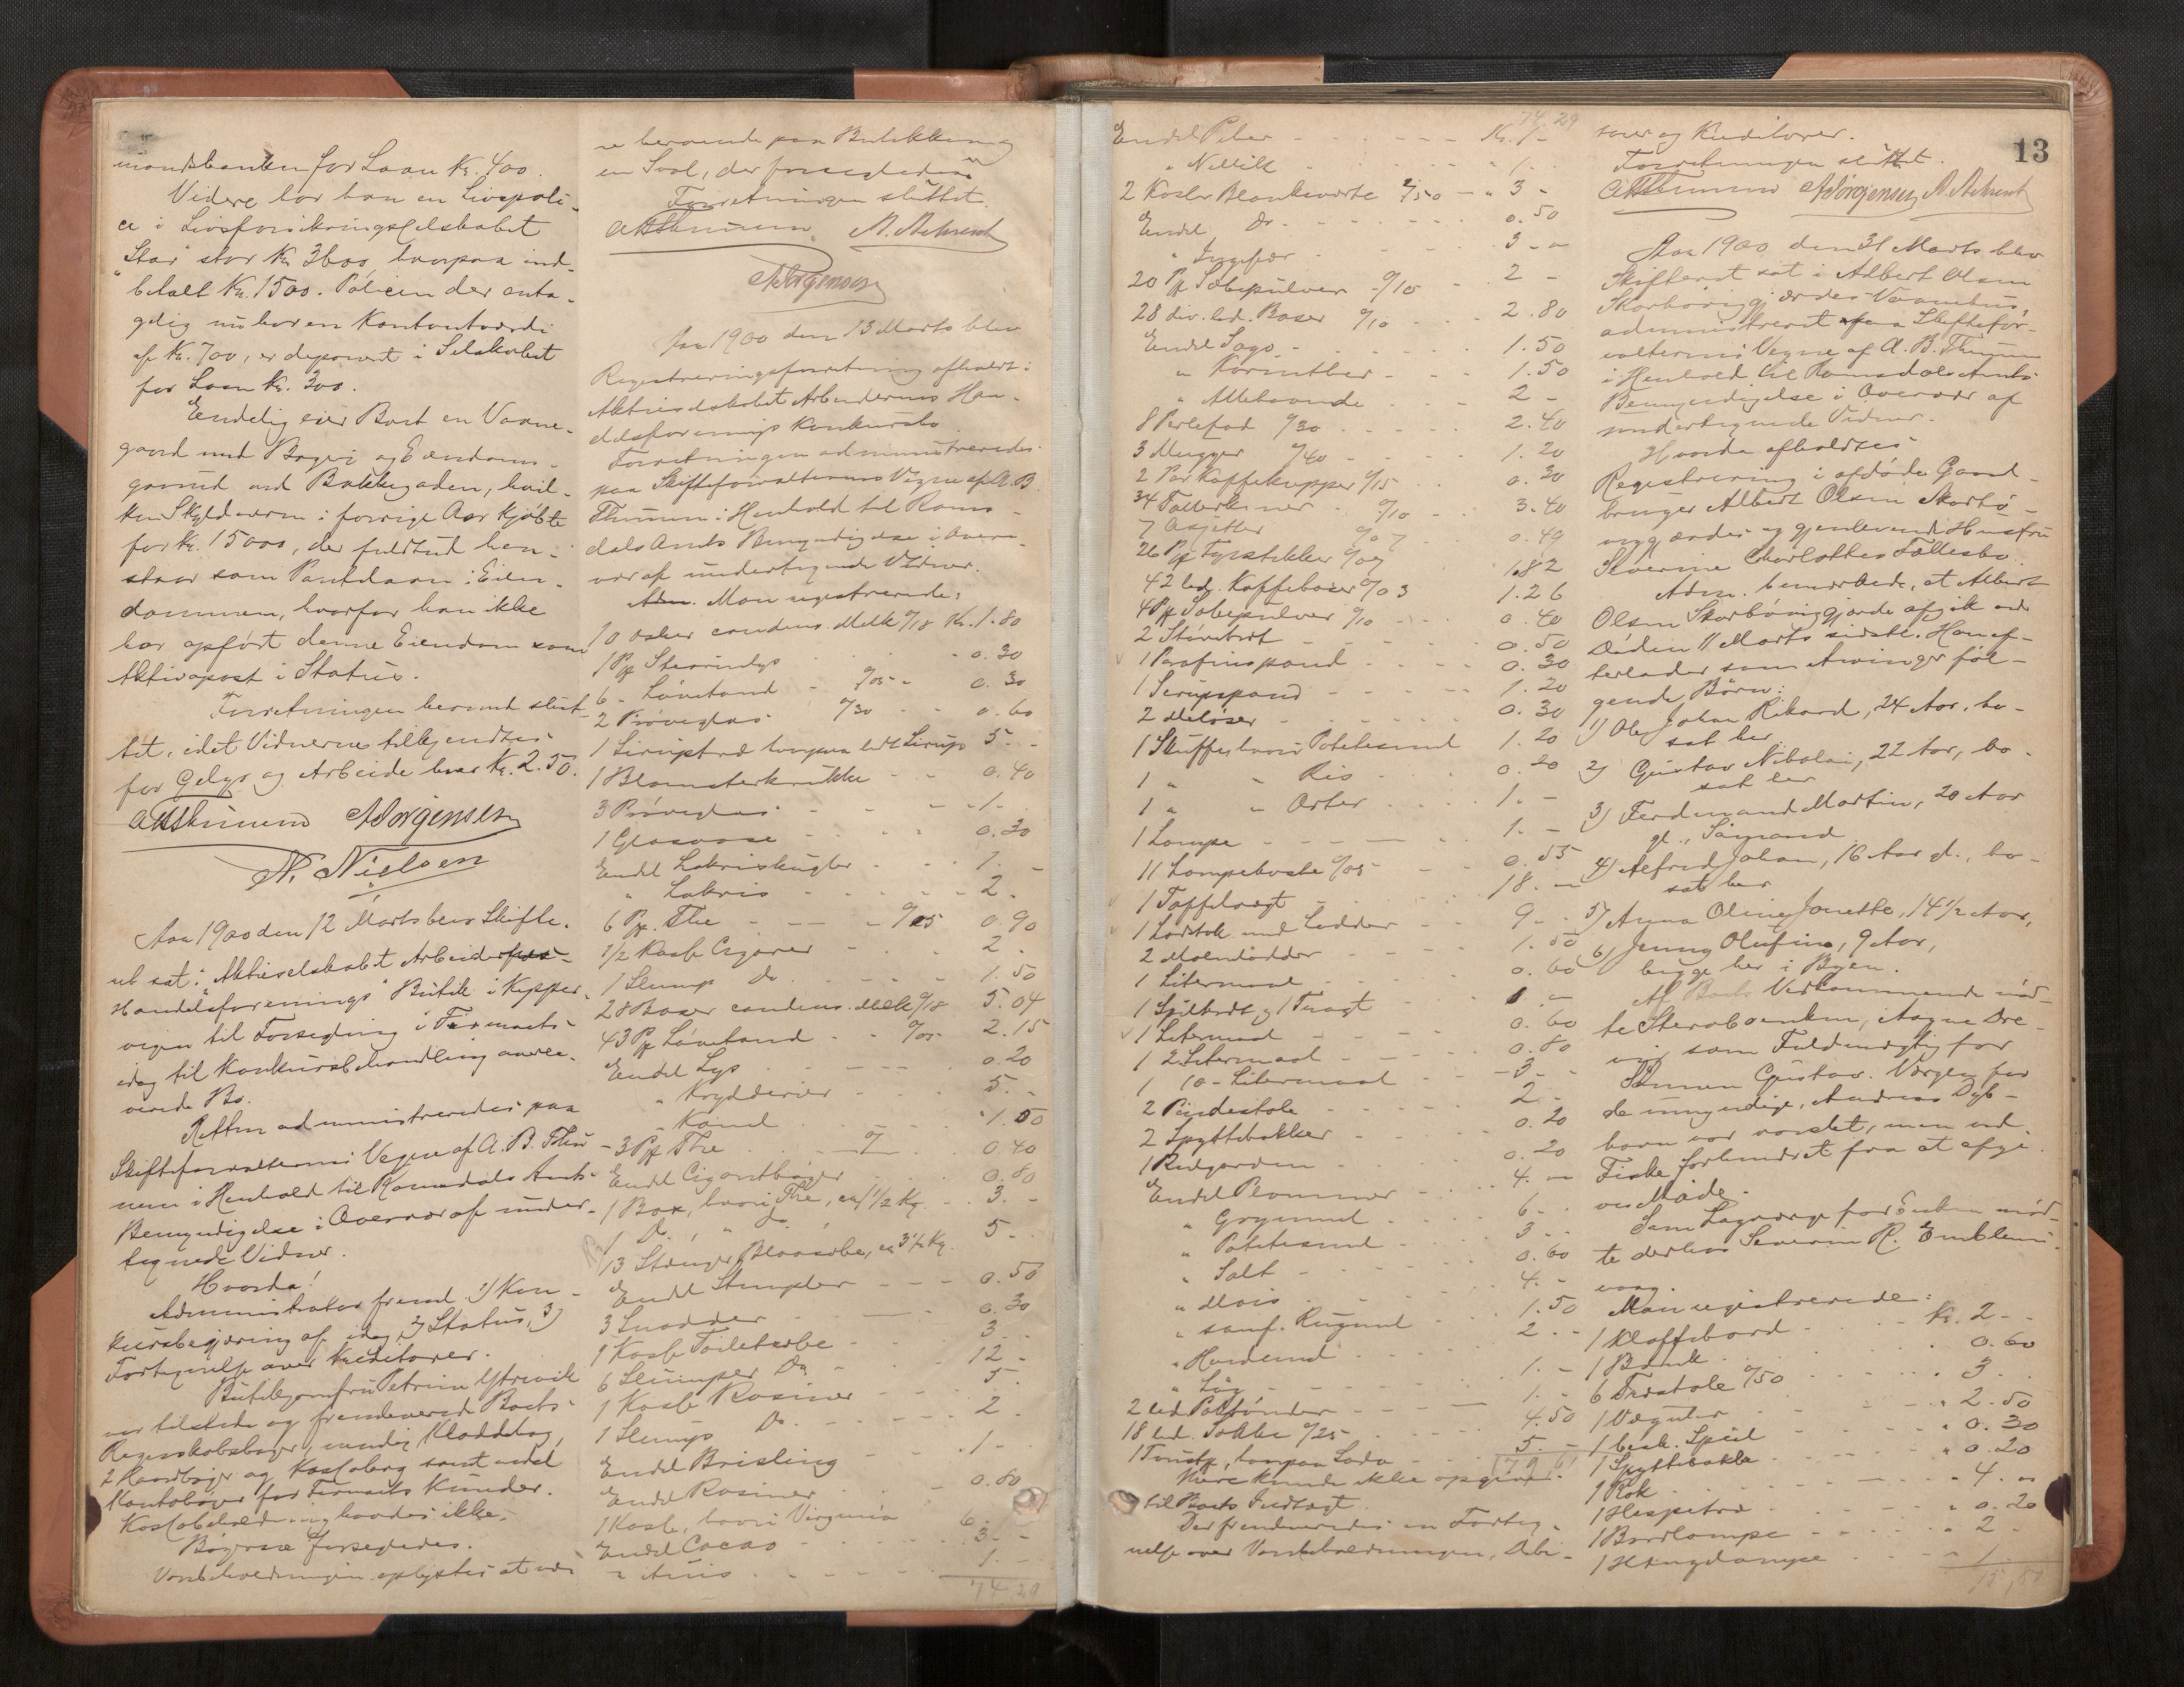 mandsbanken for Laan Kr. 400.
Videre har han en Livspoli-
ce i Livsforsikringsselskabet
"Star" stor Kr. 3600, hvorpaa ind-
betalt Kr. 1500. Policen der anta-
gelig nu har en Kontantværdi
af Kr. 700, er deponert i Selskabet
for Laan Kr. 300.
Endelig eier Boet en Vaane-
gaard med Bageri og Eiendoms-
grund ved Bakkegaden, hvil-
ken Skyldneren i forrige Aar kjøbte
for Kr. 15000, der fuldtud hen-
staar som Pantelaan i Eien-
dommen, hvorfor han ikke
har opført denne Eiendom som
Aktivapost i Status.
Forretningen herved slut-
tet, idet Vidnerne tilkjendtes
for Gelys og Arbeide hver Kr. 2.50.
A B Thumem AJørgensen
N. Nielsen
Aar 1900 den 12 Marts blev Skifte-
ret sat i "Aktieselskabet Arbeider
Handelsforenings" Butik i Kipper-
vegen til Forsegling i Firmaets
idag til Konkursbehandling overle-
verede Bo.
Retten administreredes paa
Skifteforvalterens Vegne af A. B. Thu-
mem i Henhold til Romsdals Amts
Bemyndigelse i Overvær af under-
tegnede Vidner.
Hvorda!
Administrator freml. 1) Kon-
kursbegjæring af idag, 2) Status, 3)
Fortegnelse over Kreditorer.
Butikjomfru Petrine Ytrevik
var tilstede og fremleverede Boets
Regnskabsbøger, nemlig Kladdebog,
2 Haandbøger og Kassabog samt endel
Kontobøger for Firmaets Kunder.
Kassabeholdning havdes ikke.
Bøgerne forsegledes.
Varebeholdningen oplystes at væ-
re beroende paa Butikken og
en Sval, der forsegledes.
Forretningen sluttet.
A B Thumem A. Behrent
AJørgensen
Aar 1900 den 13 Marts blev
Registreringsforretning afholdt i
Aktieselskabet Arbeidernes Han-
delsforenings Konkursbo.
Forretningen administreredes
paa Skifteforvalterens Vegne af A. B.
Thumem i Henhold til Roms-
dals Amts Bemyndigelse i Over-
vær af undertegnede Vidner.
Adm. Man registrerede:
10 æsker condens. Melk à/18 Kr. 1.80
1 Pk Stearinlys - 0.30
6 - Løvetand - à/05 - 0.30
2 Prøveglas à/30 - 0.60
1 Siruptræ hvorpaa lidt Sirup 5. -
1 Blomsterkrukke - 0.40
3 Prøveglas - 1. -
1 Glasvase - 0.30
Endel Lakriskugler - 1. -
" Lakris - 2. -
6 Pk. The - à/05 0.90
1/2 Kasse Cigarer - 2. -
1 Slump Do - 1.50
28 Boxer condens. Melk à/18 5.04
43 Pk Løvetand - à/05 2.15
Endel Lys - 0.20
" Krydderier - 5. -
" Kanel - 1.50
3 Pk The - 0.40
Endel Cigarettbøger - 0.80
1 Box, hvori The, ca 1 1/2 Kg - 3. -
1 Do. " do
13 Stænger Blaasæbe, ca 3 1/2 Kg 5. -
Endel Stempler - 0.50
3 Snadder - 0.30
1 Kasse Toiletsæbe - 3. -
6 Slumper Do - 12 -
1 Kasse Rosiner - 5. -
1 Slump Do. - 2. -
Endel Brisling - 1. -
Endel Rosiner - 0.80
1 Kasse, hvori Virginia 6. -
Endel Cacao - 3. -
" Anis - 1. -
74 29
74.29
Endel Peber - Kr. 1 -
" Nellik - " 1. -
2 Kasser Blanksværte à/1.50 - " 3 -
Endel Do - 0.50
" Ingefær - 3 - "
20 Pk Sæbepulver à/10 - 2 -
28 div. led. Boxer à/10 - 2.80
Endel Sago - 1.50
" Korinther - 1.50
" Allehaande - 2 -
8 Perlefad à/30 - 2.40
3 Mugger à/40 - 1.20
2 Par Kaffekopper à/15 - 0.30
34 Tallerkener - à/10 - 3.40
7 Asjetter à/07 0.49
26 Pk Fyrstikker à/07 1.82
42 led. Kaffeboxer à/03 1.26
4 Pk Sæbepulver à/10 - 0.40
2 Stinebret - 0.50
1 Parafinspand - 0.30
1 Sirupspand - 1.20
2 Meløser - 0.30
1 Skuffe, hvori Potetesmel 1.20
1 " " Ris - 0.20
1 " " Erter - 1. -
1 Lampe - 1. -
11 Lampekoste à/05 - 0.55
1 Taffelvægt - 18. -
1 Lodstok med Lodder - 9 -
2 Metallodder - 1.50
1 Litermaal - 0.60
1 Spilbret & 1 Tragt 1 -
1 Litermaal - 0.60
1 2 Litermaal - 0.80
1 10 - Litermaal - 3 -
2 Pindestole - 2 -
2 Spyttebakker - 0.20
1 Rulgardin - 0.20
Endel Plommer - 4. -
" Grynmel - 6. -
" Potetesmel - 3 -
" Salt - 0.60
" Mais - 4. -
" samf. Rugmel - 1.50
" Hvedemel - 2 -
" Løg - 1. -
2 led Pottønder - 1. -
18 led. Sække à/25 - 4.50
1 Tønde, hvorpaa Soda - 5. -
Mere kunde ikke opgives
til Boets Indtægt.
Der fremleveredes en Forteg-
nelse over Varebeholdningen, Debi-
torer og Kreditorer.
Forretningen sluttet.
A B Thumem AJørgensen A Behrent
13
Aar 1900 den 31 Marts blev
Skifteret sat i Albert Olsen
Skarbøviggjærdes Vaanehus,
administreret paa Skiftefor-
valterens Vegne af A. B. Thumem
i Henhold til Romsdals Amts
Bemyndigelse i Overvær af
undertegnede Vidner.
Hvorda afholdtes
Registrering i afdøde Gaard-
bruger Albert Olsen Skarbø-
viggjærdes og gjenlevende Hustru
Severine Charlottes Fællesbo.
Adm. bemærkede, at Albert
Olsen Skarbøviggjærde afgik ved
Døden 11 Marts sidstl. Han ef-
terlader som Arvinger føl-
gende Børn:
1) Ole Johan Rikard, 24 Aar, bo-
sat her.
2) Gustav Nikolai, 22 Aar, bo-
sat her
3) Ferdinand Martin, 20 Aar
gl., Sømand
4) Alfred Johan, 16 Aar gl., bo-
sat her
5) Anna Oline Janette, 14 1/2 Aar,
6) Jenny Olufine, 9 Aar,
begge her i Byen.
Af Boets Vedkommende mød-
te Sterboenken, Aagne Dre-
vig som Fuldmægtig for
Sønnen Gustav. Værgen for
de umyndige, Andreas Dyb-
havn var varslet, men ved
Fiske forhindret fra at afgi-
ve Møde.
Som Lagværge for Enken mød-
te derhos Severin R. Emblems-
vaag.
Man registrerede:
1 Klaffebord - Kr. 2 -
1 Bænk - 0.60
6 Træstole à/50 - 3 -
1 Væguhr - " 2.50
1 besk. Speil - " 0.30
1 Spyttebakke - " 0.20
1 Rok - 4. "
1 Hespetræ - " 0.20
1 Bordlampe - " 2 -
1 Hængelampe - " 1.
15,80